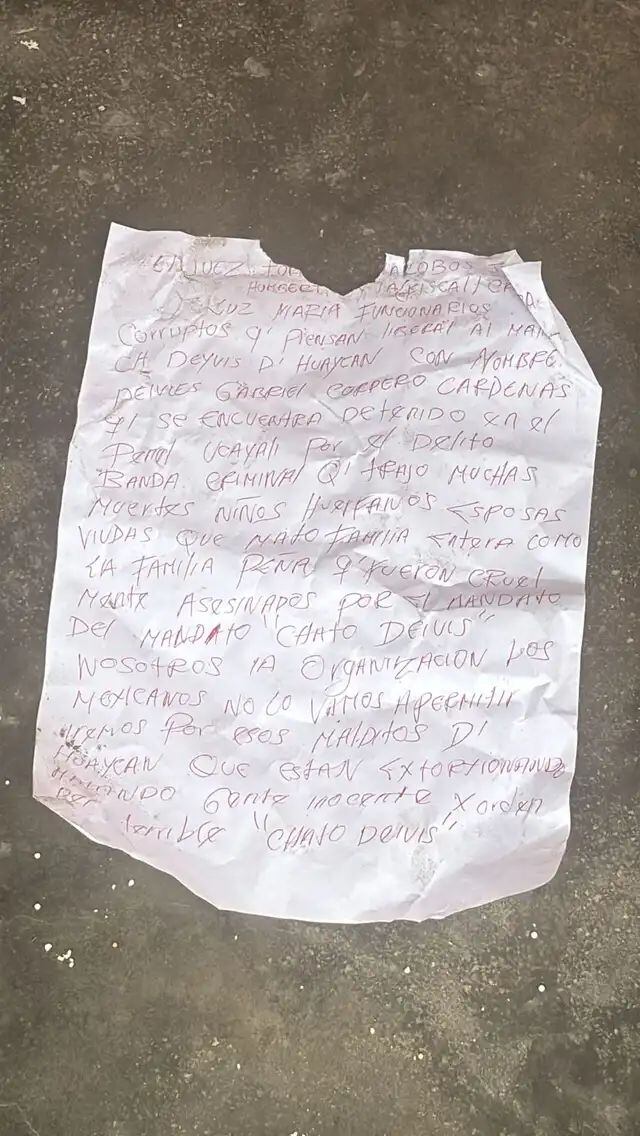 EL JUEZ TOR ALOBOS
HUMBERTO FISCAL
LUZ MARIA FUNCIONARIOS
CORRUPTOS q' PIENSAN LIBERAR AL
DEYVIS D' HUAYCAN CON NOMBRE
DEIVIES GABRIEL CORDERO CARDENAS
q' SE ENCUENTRA DETENIDO EN el
Penal UCAYALI POR el DELITO
BANDA CRIMINAL Q' TRAJO MUCHAS
MUERTES NIÑOS HUERFANOS ESPOSAS
VIUDAS QUE MATO FAMILIA ENTERA COMO
LA FAMILIA PEÑA q' FUERON CRUEL
MENTE ASESINADOS POR el MANDATO
DEL MANDATO "CHATO DEIVIS"
NOSOTROS LA ORGANIZACION LOS
MEXICANOS NO LO VAMOS A PERMITIR
IREMOS POR ESOS MALDITOS D'
HUAYCAN QUE ESTAN EXTORSIONANDO
MATANDO Gente inocente x orden
Del terrible "CHATO DEIVIS"